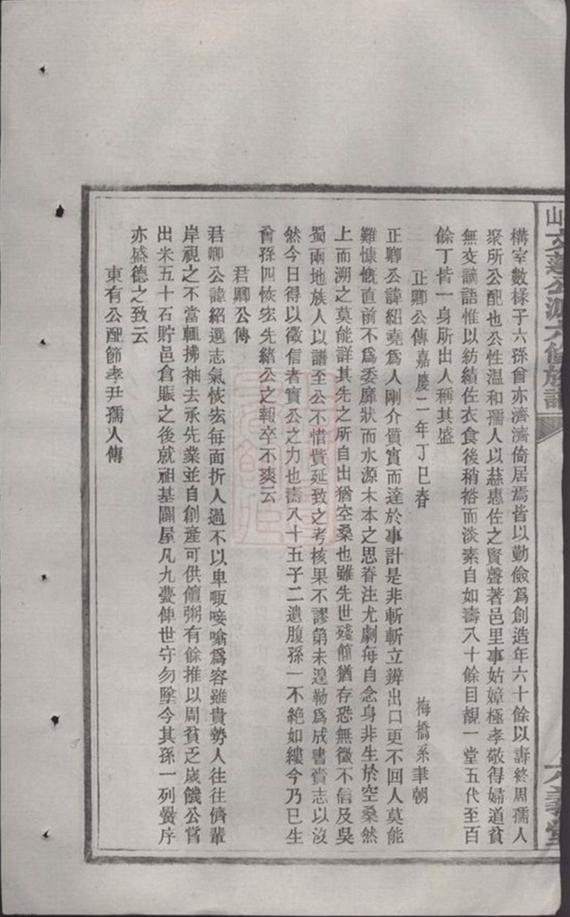 構室數椽子六孫曾亦濟濟倚居焉皆以勤儉爲創造年六十餘以壽終周孺人
眾所公配也公性温和孺人以慈惠佐之賢聲著邑里事姑嫜極孝敬得婦道貧
無交讁語惟以紡績佐衣食後稍裕而淡素自如壽八十餘目覩一堂五代至百
餘丁皆一身所出人稱其盛
正卿公傳嘉慶二年丁巳春 梅橋系聿朝
正卿公諱紹堯爲人剛介質實而達於事計是非斬斬立辨出口更不回人莫能
難慷慨直前不爲委靡狀而水源木本之思眷注尤劇每自念身非生於空桑然
上而溯之莫能詳其先之所自出猶空桑也雖先世殘簡猶存恐無徵不信及吳
蜀兩地族人以譜至公不惜貲延致之考核果不謬第未遑勒爲成書賫志以沒
然今日得以徵信者實公之力也壽八十五子二遺腹孫一不絶如縷今乃已生
曾孫四恢宏先緒公之報卒不爽云
君卿公傳
君卿公諱紹選志氣恢宏每面折人過不以卑喔唼噏爲容雖貴勢人往往儕輩
岸視之不當輒拂袖去承先業並自創產可供饘粥有餘推以周貧乏歲饑公嘗
出米五十石貯邑倉賑之後就祖基闢屋凡九甍俾世守勿墜今其孫一列黌序
亦盛德之致云
東有公配節孝尹孺人傳
六義堂